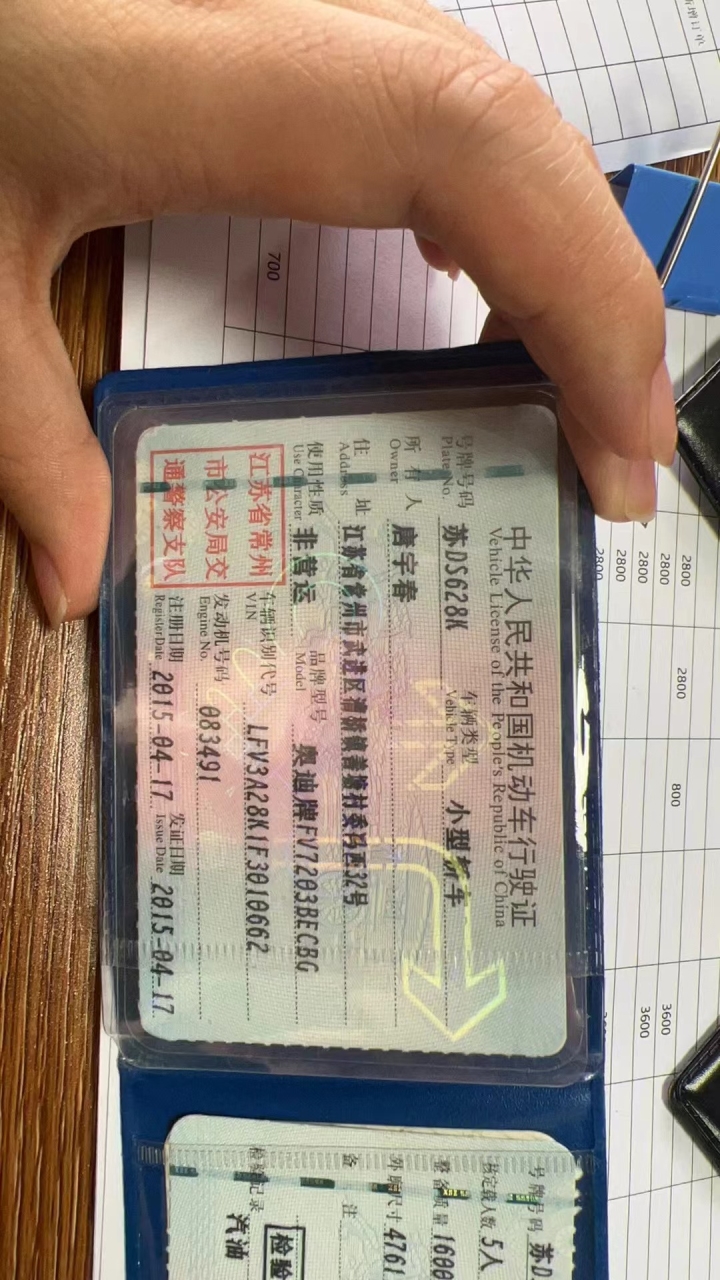 中华人民共和国机动车行驶证
Vehicle License of the People's Republic of China
号牌号码 苏DS628K 车辆类型 小型轿车
Plate No. Vehicle Type
所有人 唐宇春
Owner
住址 江苏省常州市武进区湟桥镇善塘村委吕西32号
Address
使用性质 非营运 品牌型号 奥迪牌FV7203BECBG
Use Character Model
江苏省常州
市公安局交
通警察支队
车辆识别代号 LFV3A28K1F3010662
VIN
发动机号码 083491
Engine No.
注册日期 2015-04-17 发证日期 2015-04-17
Register Date Issue Date
号牌号码 苏D
核定载人数 5人
整备质量 1600
外廓尺寸 4761
备注
检验记录 汽油
检验
700
2800
2800
2800
2800
2800
800
3600
3600